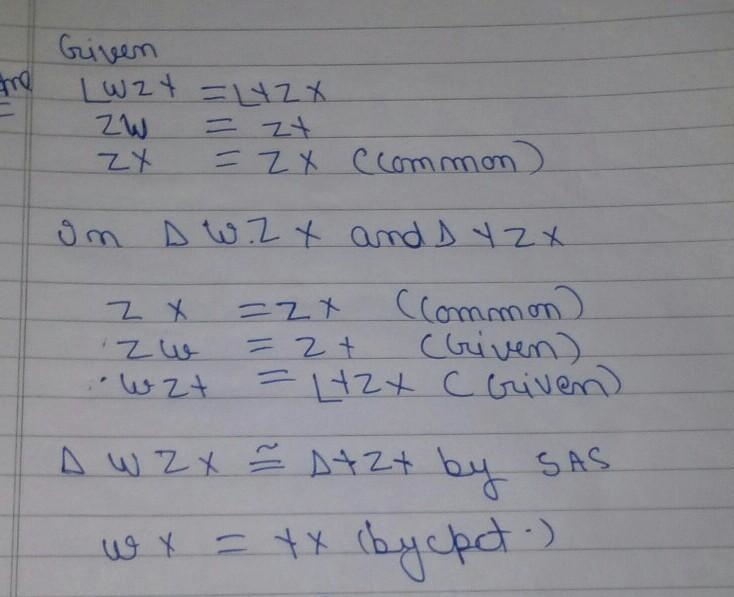 Given
∠WZX = ∠YZX
ZW = ZY
ZX = ZX (common)
In Δ W.Z X and Δ YZX
ZX = ZX (common)
ZW = ZY (Given)
∴ WZX = ∠YZX (Given)
Δ WZX ≅ ΔYZX by SAS
WX = YX (by cpct.)